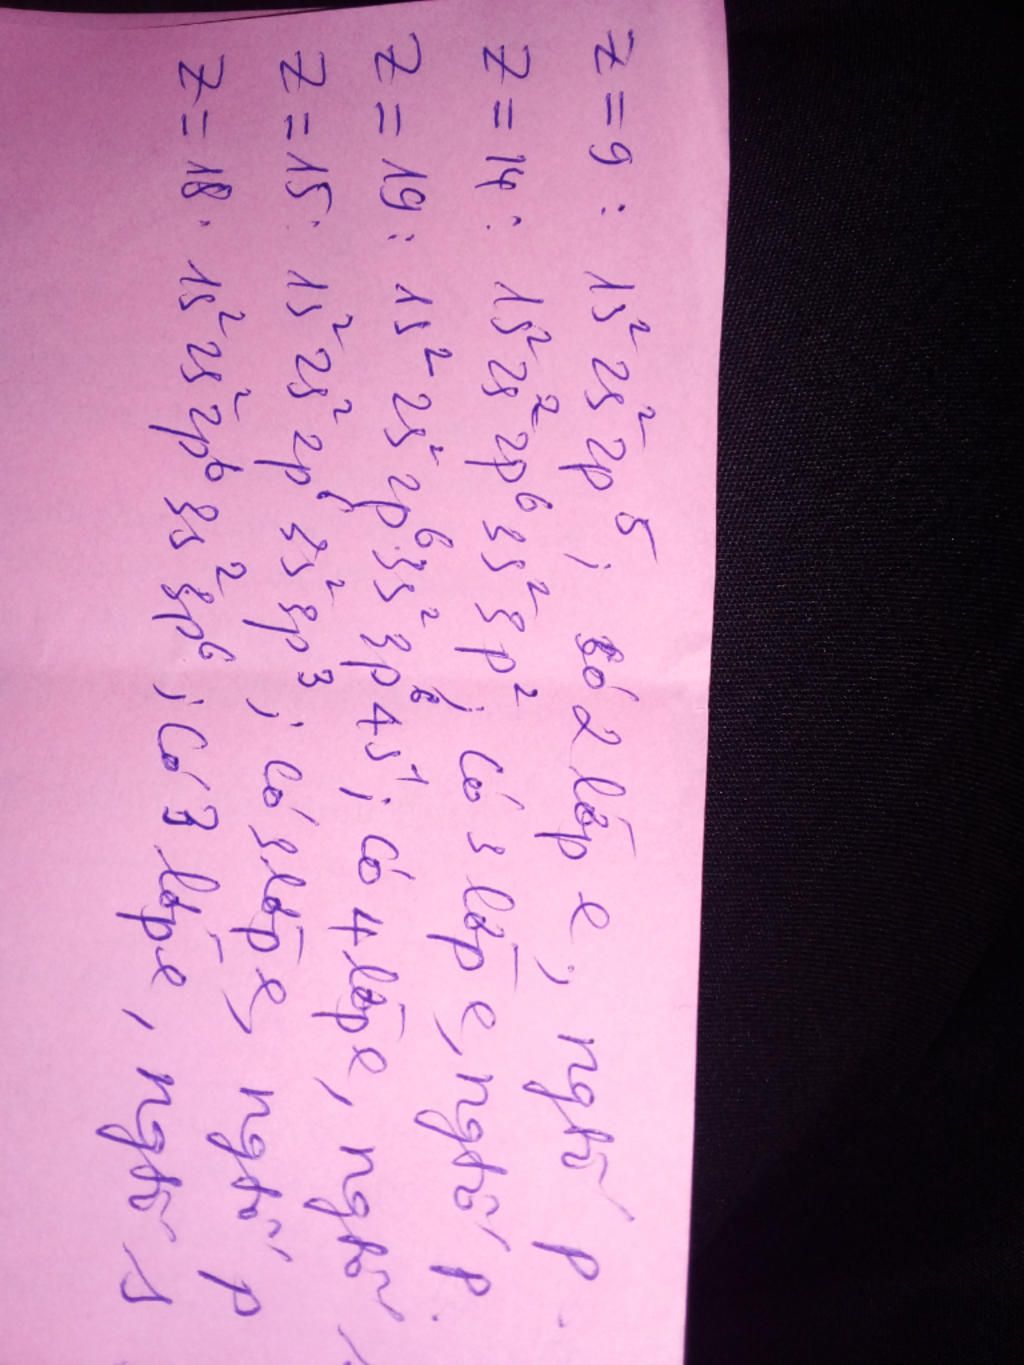 Z = 9 : 1s² 2s² 2p⁵ ; có 2 lớp e, ngtố p.
Z = 14 : 1s² 2s² 2p⁶ 3s² 3p² ; có 3 lớp e, ngtố p.
Z = 19 : 1s² 2s² 2p⁶ 3s² 3p⁶ 4s¹ ; có 4 lớp e, ngtố
Z = 15 : 1s² 2s² 2p⁶ 3s² 3p³ ; có 3 lớp e, ngtố p
Z = 18 . 1s² 2s² 2p⁶ 3s² 3p⁶ ; có 3 lớp e, ngtố s